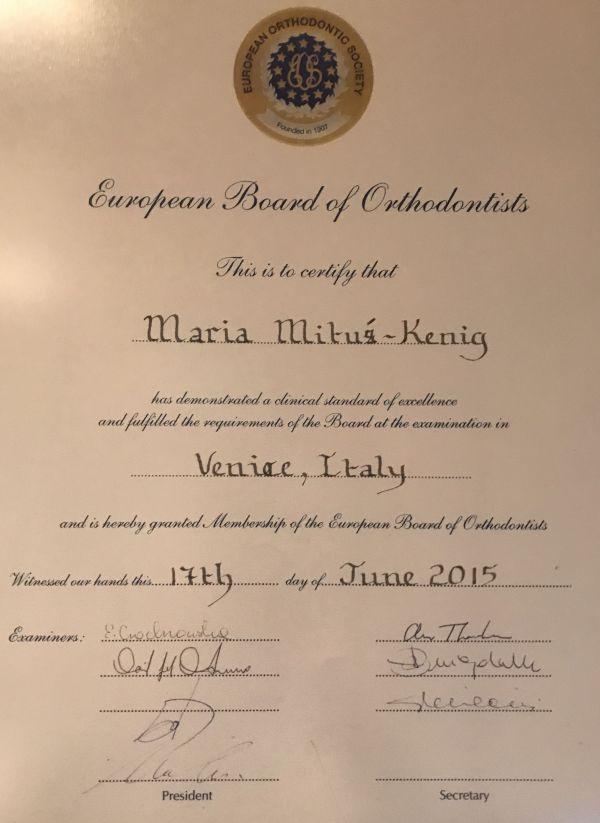 EUROPEAN ORTHODONTIC SOCIETY
EOS
Founded in 1907
European Board of Orthodontists
This is to certify that
Maria Mituś-Kenig
has demonstrated a clinical standard of excellence
and fulfilled the requirements of the Board at the examination in
Venice, Italy
and is hereby granted Membership of the European Board of Orthodontists
Witnessed our hands this 17th day of June 2015
Examiners:
President Secretary